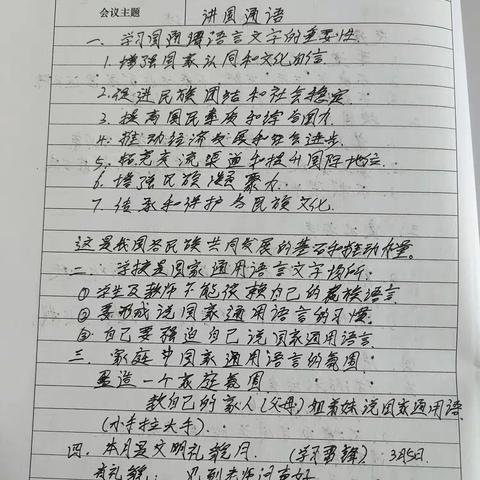 会议主题 讲国通语
一、学习国通语言文字的重要性
1. 增强国家认同和文化自信
2. 促进民族团结和社会稳定
3. 提高国民素质和综合国力
4. 推动经济发展和社会进步
5. 拓宽交流渠道和提升国际地位
6. 增强民族凝聚力
7. 传承和保护各民族文化
这是我国各民族共同发展的基石和推动力量。
二、学校是国家通用语言文字场所:
① 学生及教师不能依赖自己的藏族语言
② 养成说国家通用语言的习惯
③ 自己要强迫自己说国家通用语言
三、家庭 国家通用语言的氛围
营造一个家庭氛围
教自己的家人(父母)姐弟妹说国家通用语
(小手拉大手)
四、本月是文明礼貌月. (学习雷锋) 3月5日.
有礼貌: 见到老师问声好